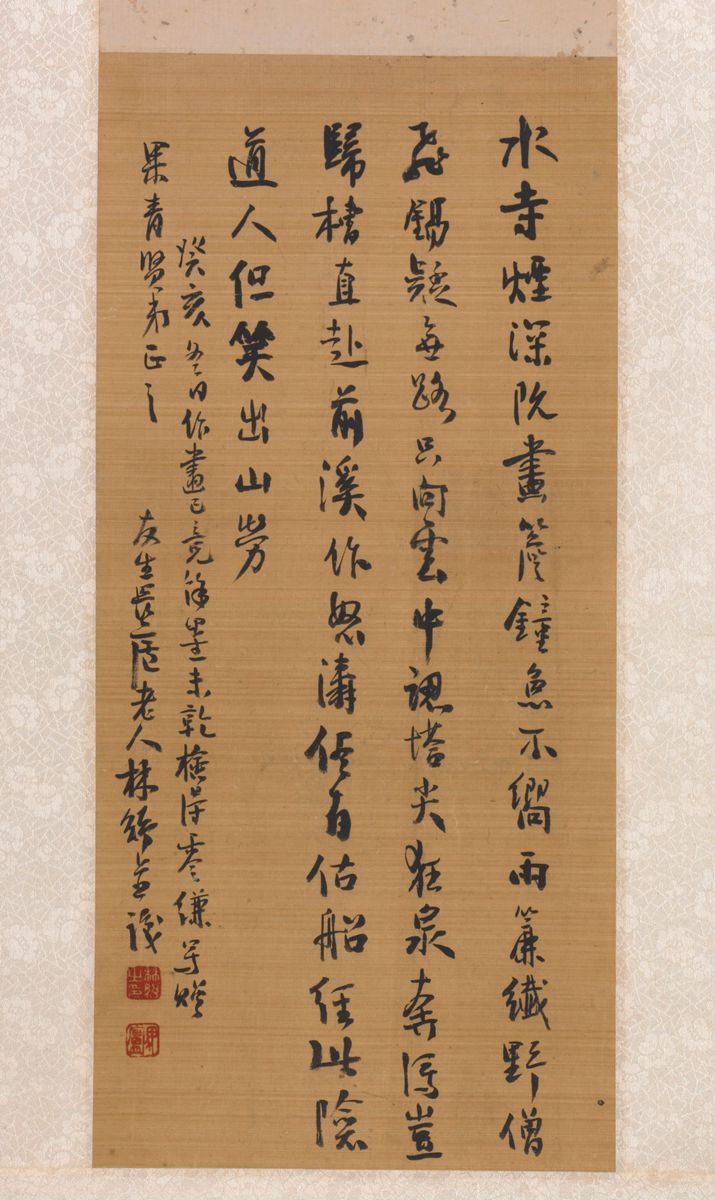 水寺煙深院畫簷鐘魚不響雨簾纖野僧
飛錫疑無路只向雲中認塔尖狂泉奔瀉豈
歸槽直赴前溪作怒濤儘有估船經此險
道人但笑出山勞
癸亥冬日作畫已竟餘墨未乾檢得零縑寫贈
果青賢弟正之
友生畏廬老人林紓並識
林紓之印
畏廬